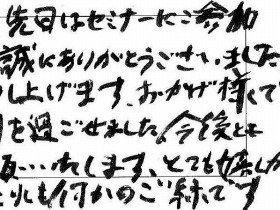 先日はセミナーにご参加
誠にありがとうございました
し上げます、おかげ様で
を過ごせました、今後とも
いたします、とても嬉しか
れも何かのご縁です